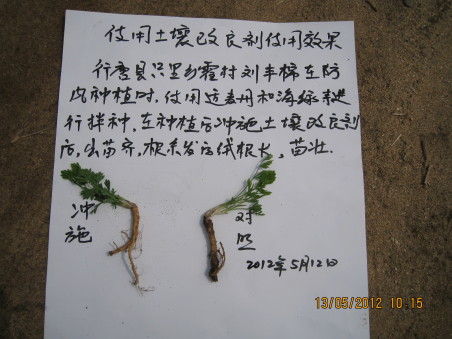 使用土壤改良剂使用效果
行唐县只里乡霍村刘丰棉在防
治种植时,使用适麦丹和海绿素进
行拌种,在种植后冲施土壤改良剂
后,出苗齐,根系发达绒根长,苗壮.
冲施
对照
2012年5月12日
13/05/2012 10:15